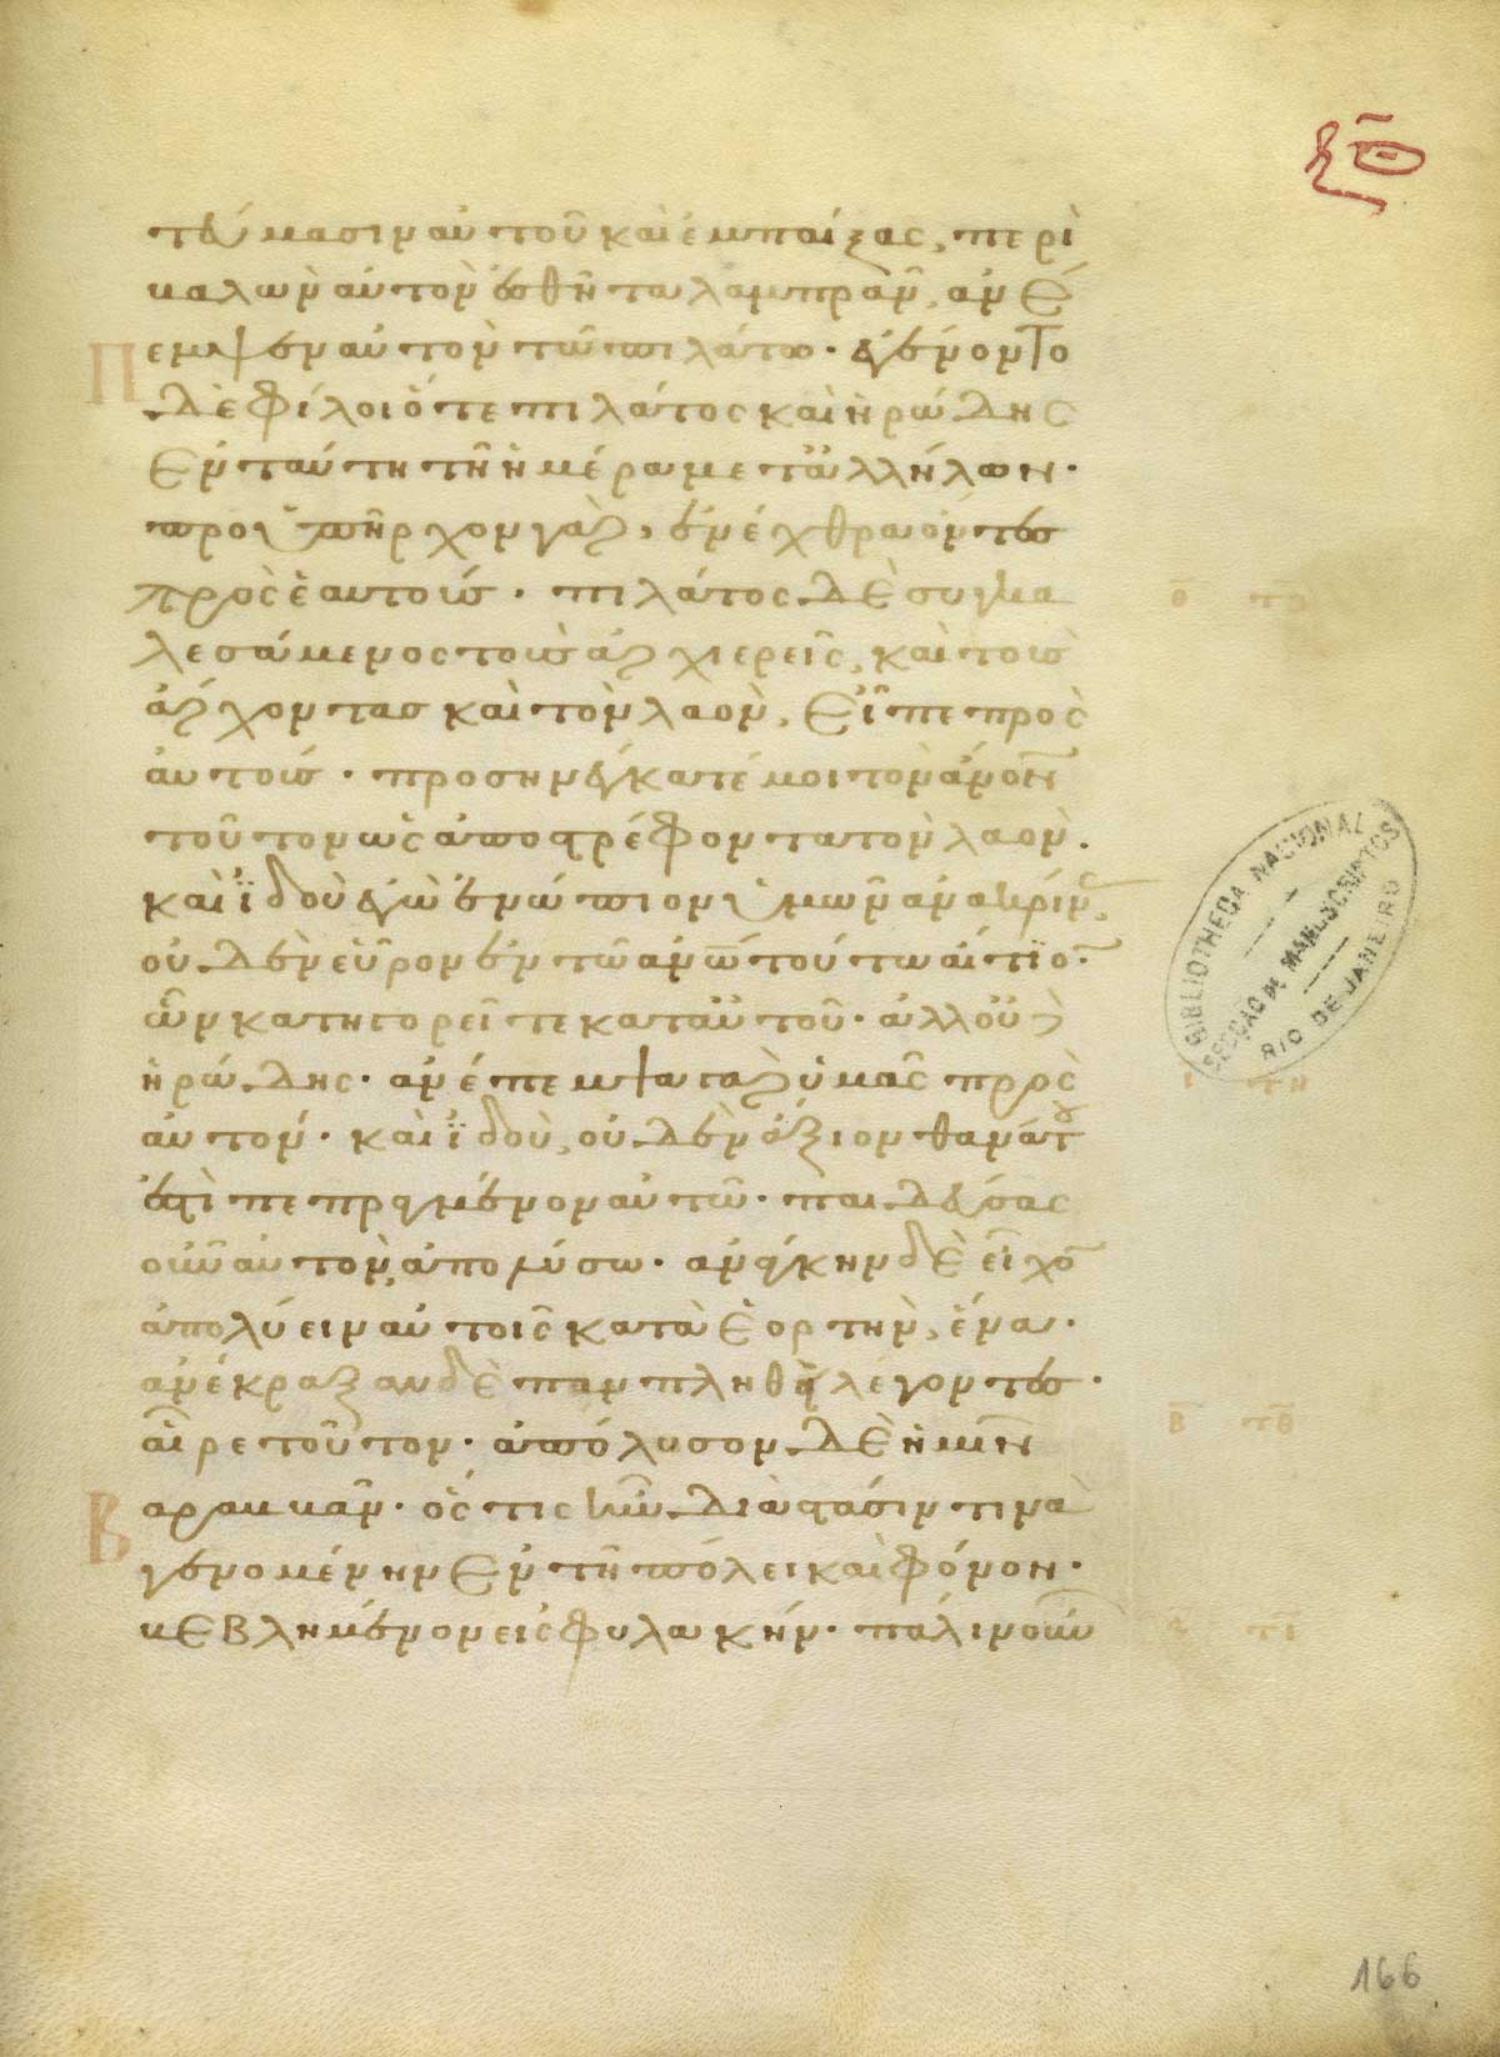 ρξθ
τεύμασιν αὐτοῦ καὶ ἐμπαίξας, περι
βαλὼν αὐτὸν ἐσθῆτα λαμπρὰν, ἀνέ
πεμψεν αὐτὸν τῶ πιλάτω· ἐγένοντο
δὲ φίλοι ὅτε πιλάτος καὶ ἡρώδης
ἐν ταύτη τῆ ἡμέρα μετ' ἀλλήλων·
προϋπῆρχον γὰρ, ἐν ἔχθρα ὄντες
πρὸς ἑαυτούς· πιλάτος δὲ συγκα
λεσάμενος τοὺς ἀρχιερεῖς, καὶ τοὺς
ἄρχοντας καὶ τὸν λαὸν, εἶπε πρὸς
αὐτούς· προσηνέγκατέ μοι τὸν ἄνον
τοῦτον ὡς ἀποστρέφοντα τὸν λαὸν.
καὶ ἰδοὺ ἐγὼ ἐνώπιον ὑμῶν ἀνακρίνας,
οὐδὲν εὗρον ἐν τῶ ἀνω τούτω αἴτιον
ὧν κατηγορεῖτε κατ' αὐτοῦ· ἀλλ' οὐδὲ
ἡρώδης· ἀνέπεμψα γὰρ ὑμᾶς πρὸς
αὐτόν· καὶ ἰδοὺ, οὐδὲν ἄξιον θανάτου
ἐστὶ πεπραγμένον αὐτῶ· παιδεύσας
οὖν αὐτὸν, ἀπολύσω· ἀνάγκην δὲ εἶχον
ἀπολύειν αὐτοῖς κατὰ ἑορτὴν, ἕνα·
ἀνέκραξαν δὲ παμπληθεὶ λέγοντες·
αἶρε τοῦτον· ἀπόλυσον δὲ ἡμῖν
βαραββᾶν· ὅς τις ἦν διὰ στάσιν τινὰ
γενομένην ἐν τῆ πόλει καὶ φόνον·
βεβλημένον εἰς φυλακήν· πάλιν οὖν
BIBLIOTHECA NACIONAL
SECÇÃO DE MANUSCRIPTOS
RIO DE JANEIRO
166